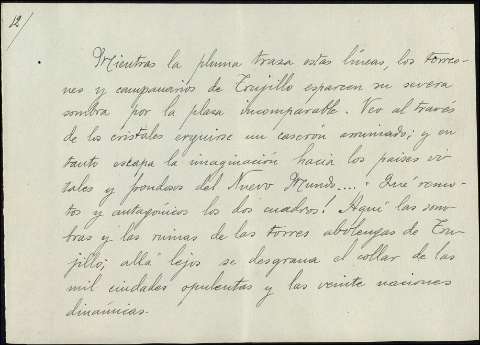 12/
Mientras la pluma traza estas líneas, los torreo-
nes y campanarios de Trujillo esparcen su severa
sombra por la plaza incomparable. Veo al través
de los cristales erguirse un caserón arruinado; y en
tanto escapa la imaginación hacia los países vi-
tales y frondosos del Nuevo Mundo.... ¡Qué remo-
tos y antagónicos los dos cuadros! Aquí las som-
bras y las ruinas de las torres abolengas de Tru-
jillo; allá lejos se desgrana el collar de las
mil ciudades opulentas y las veinte naciones
dinámicas.